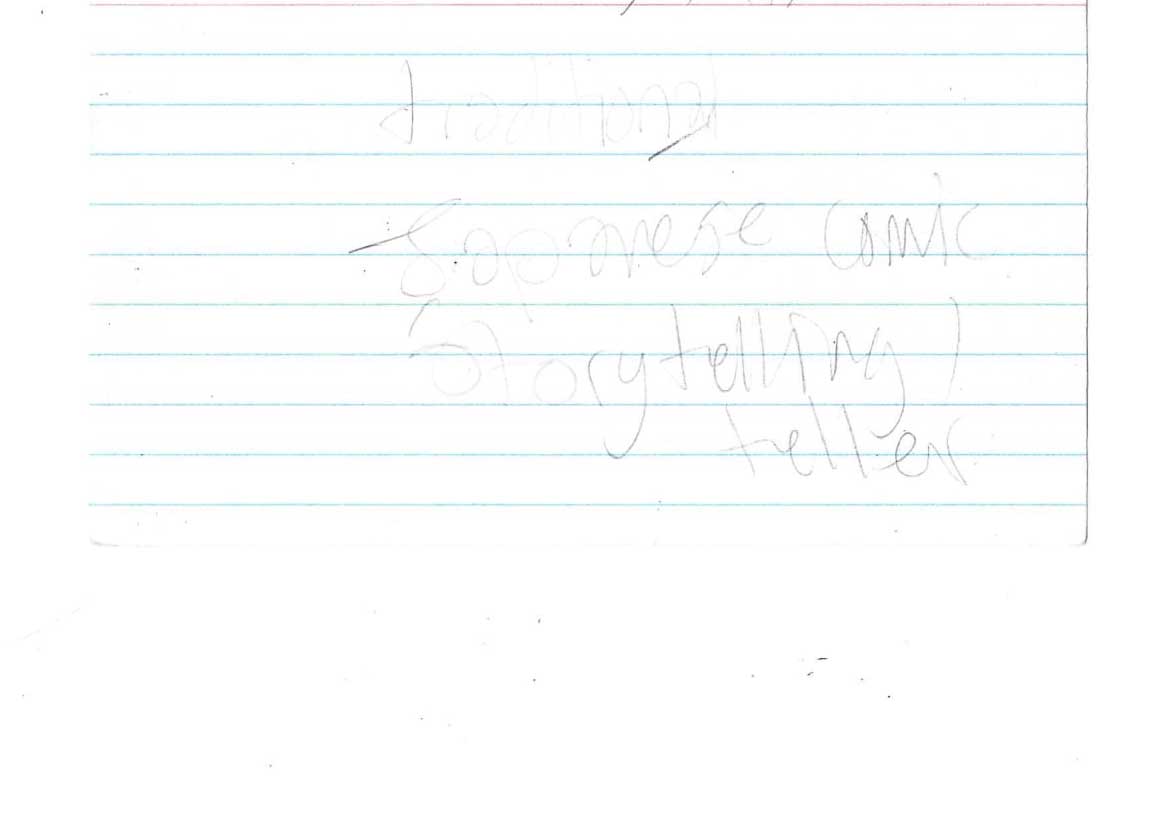 traditional
Japanese comic
Storytelling/
teller